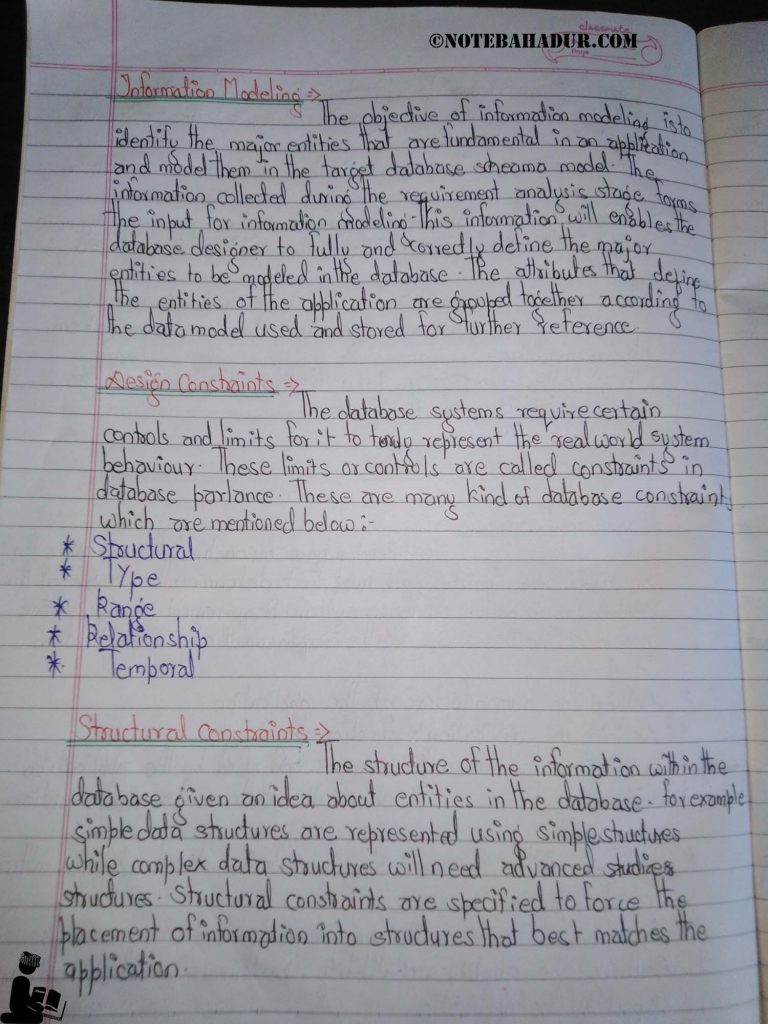 classmate
©NOTEBAHADUR.COM
Page
Information Modeling =>
The objective of information modeling is to
identify the major entities that are fundamental in an application
and model them in the target database scheama model. The
information collected during the requirement analysis stage forms
the input for information modeling. This information will enables the
database designer to fully and correctly define the major
entities to be modeled in the database. The attributes that define
the entities of the application are grouped together according to
the data model used and stored for further reference
Design Constraints =>
The database systems require certain
controls and limits for it to represent the real world system
behaviour. These limits or controls are called constraints in
database parlance. These are many kind of database constraints
which are mentioned below :-
* Structural
* Type
* Range
* Relationship
* Temporal
Structural Constraints =>
The structure of the information within the
database given an idea about entities in the database. for example
simple data structures are represented using simple structures
while complex data structures will need advanced studies
structures. Structural constraints are specified to force the
placement of information into structures that best matches the
application.